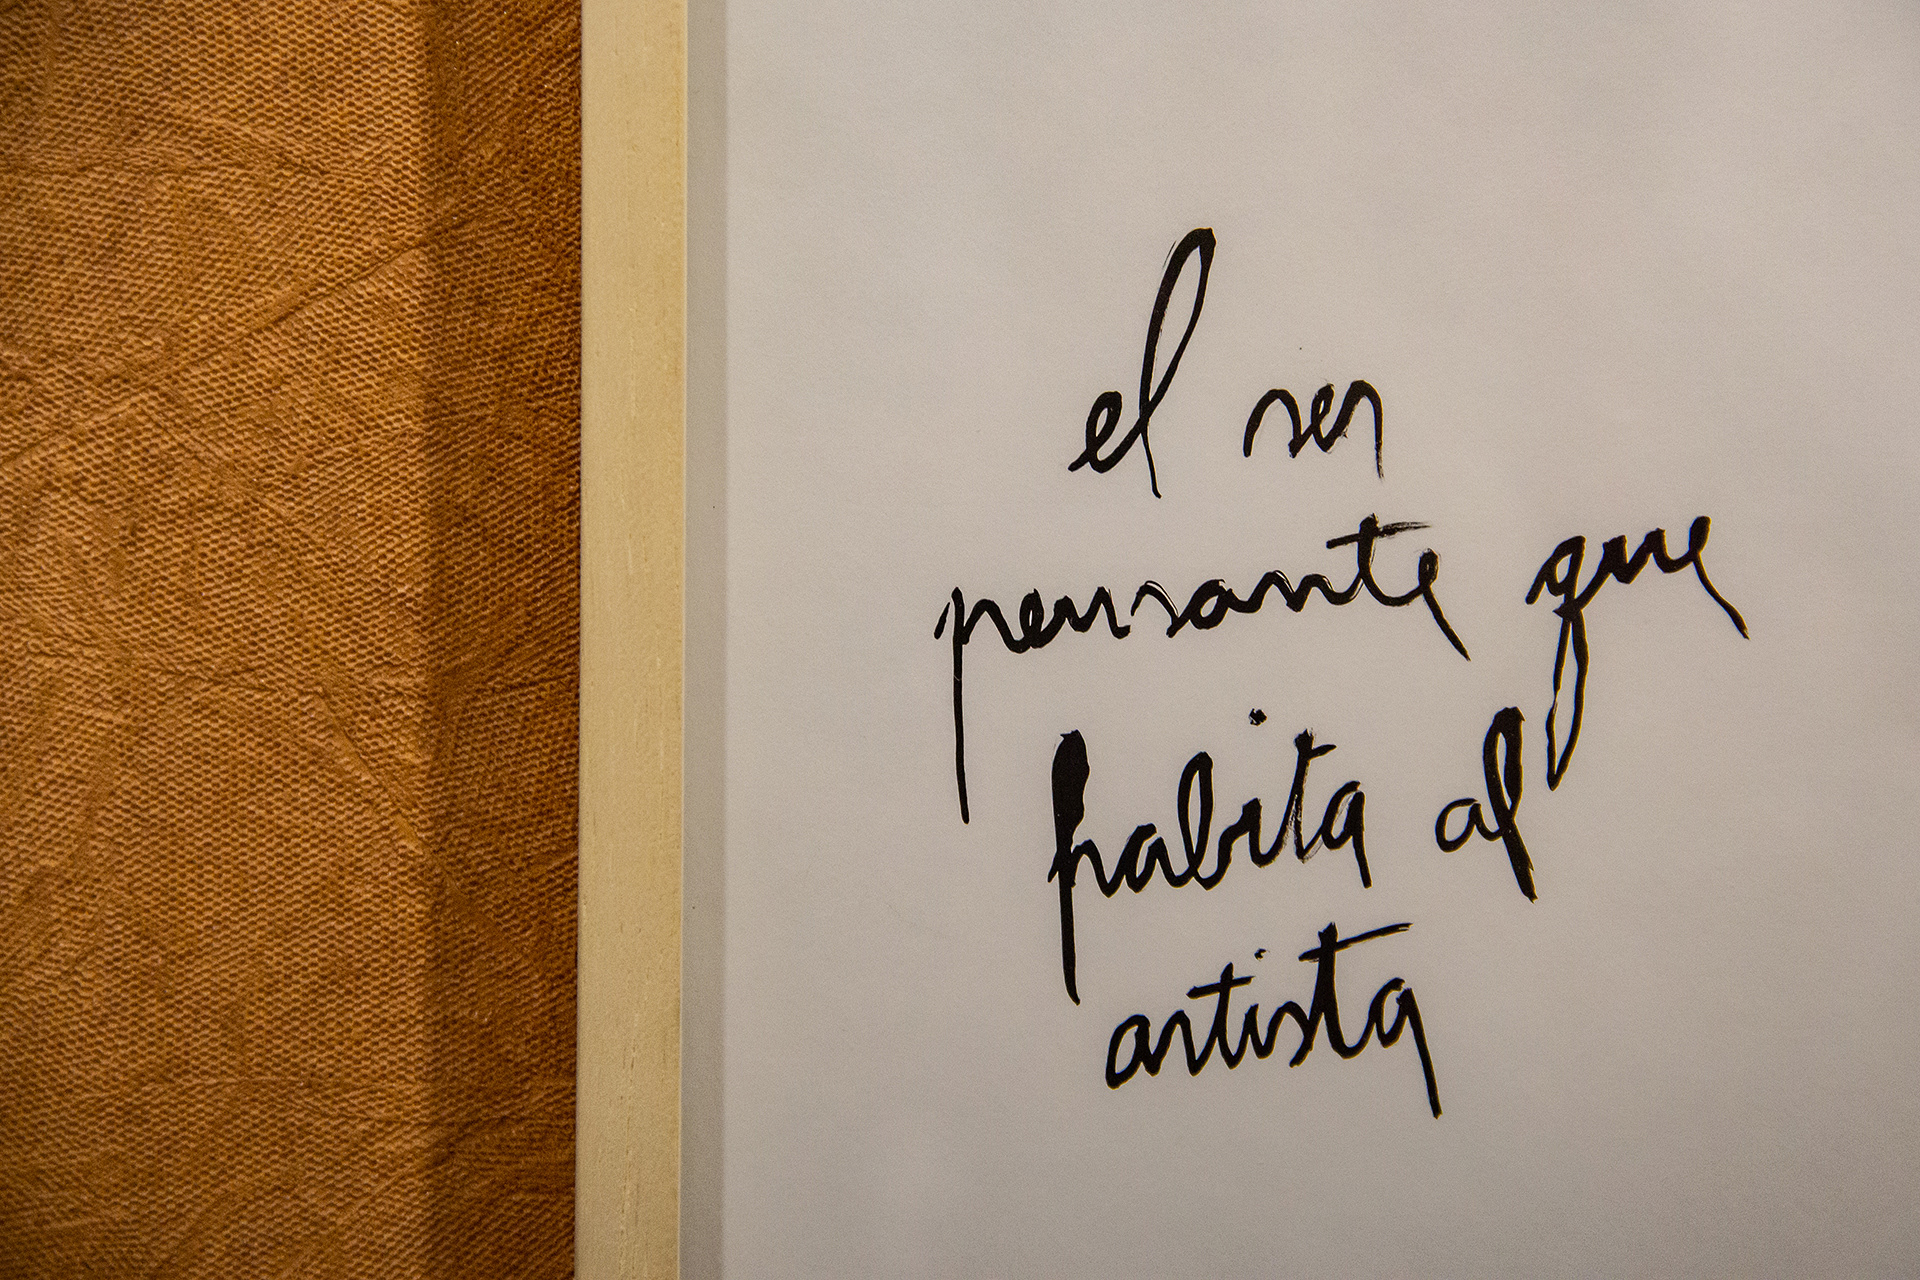 el ser
pensante que
habita al
artista